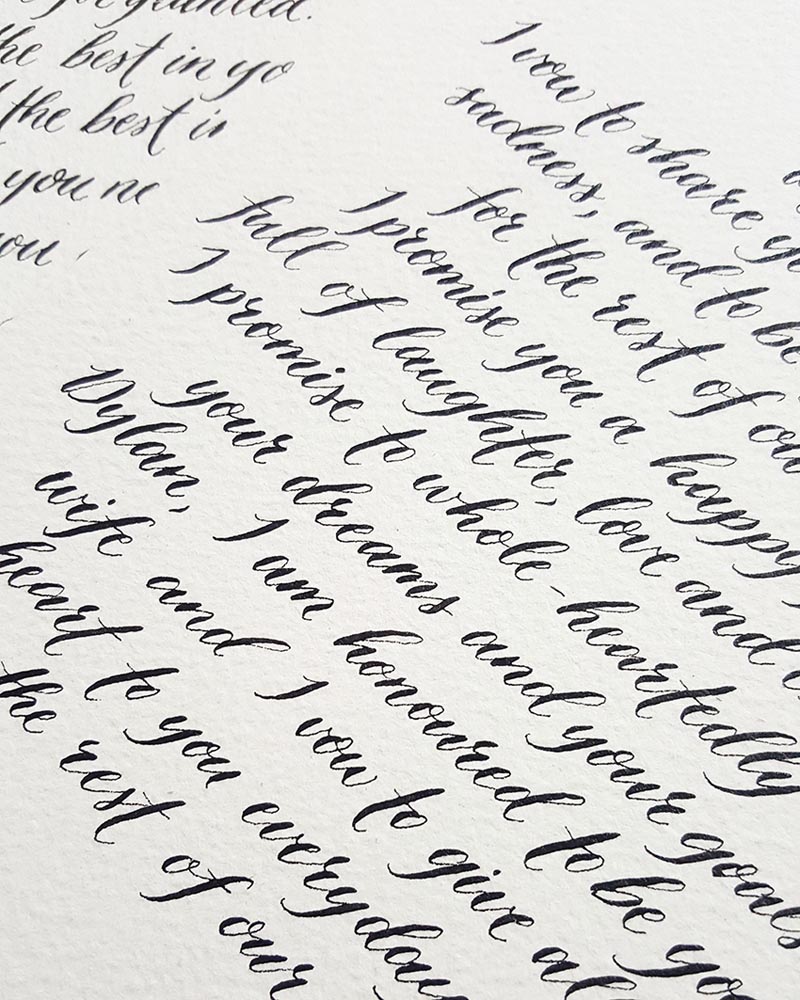 granted.
the best in yo
the best in
you ne
you,
I vow to share yo
sadness, and to be
for the rest of ou
I promise you a happy
full of laughter, love and
I promise to whole-heartedly
your dreams and your goals
Dylan, I am honoured to be yo
wife and I vow to give al
heart to you everyday
the rest of our